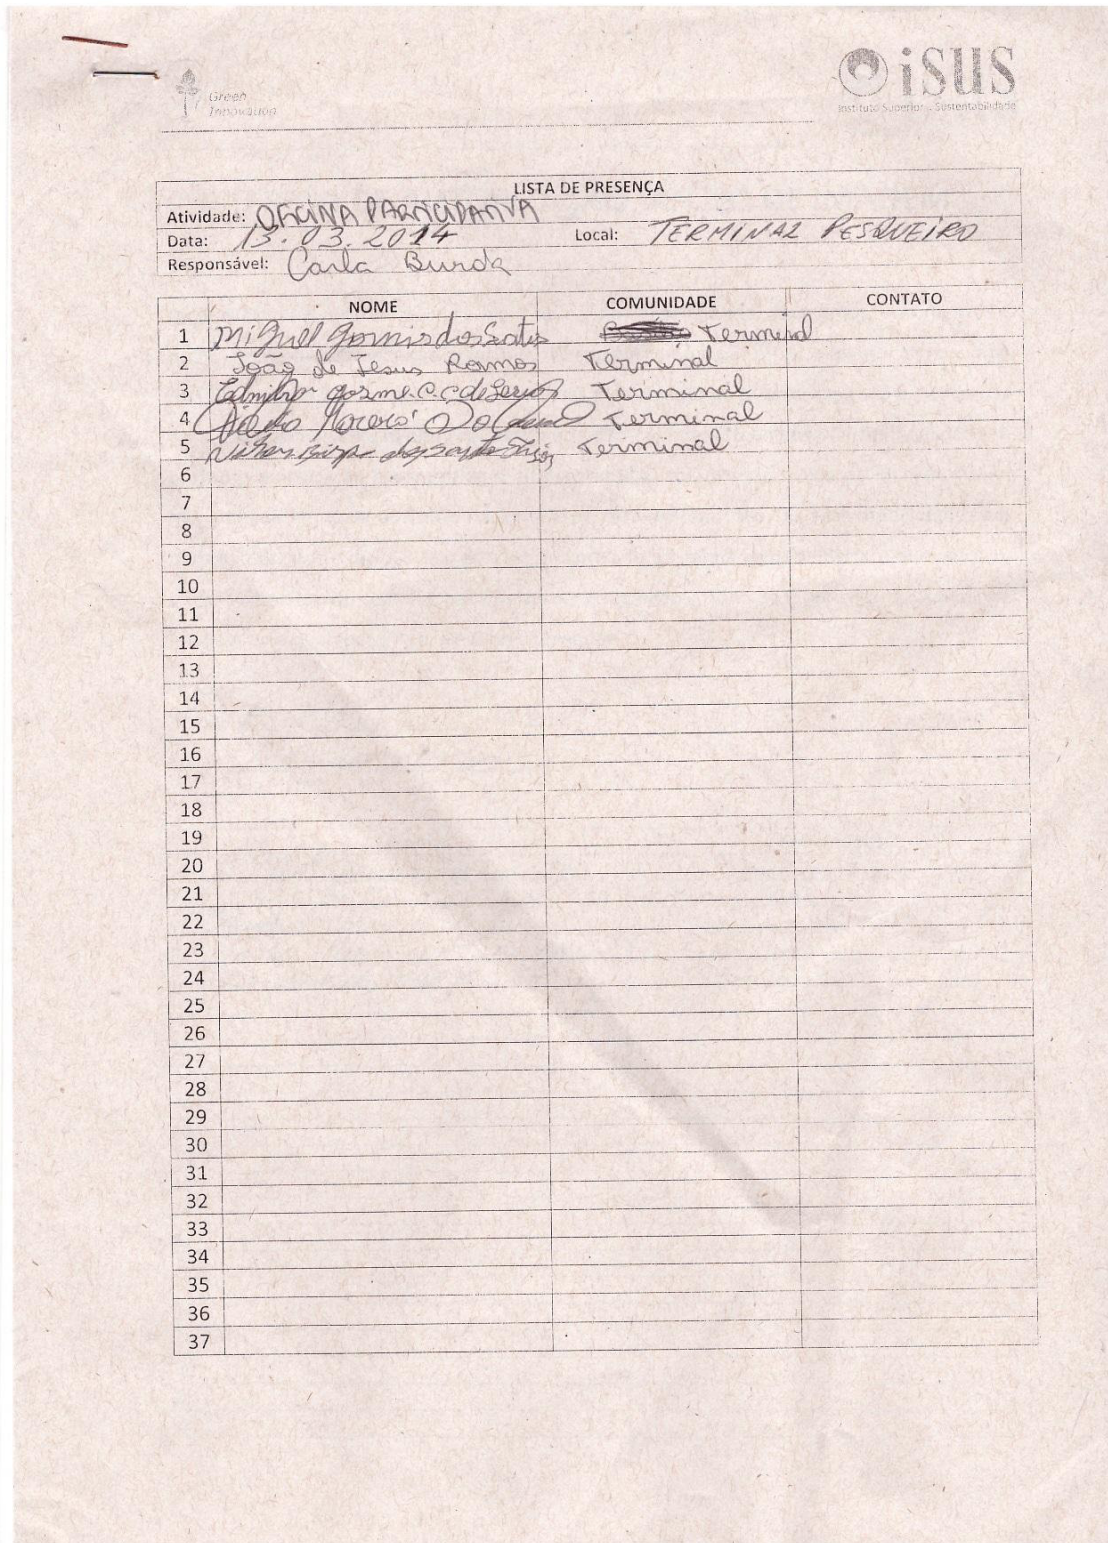 Green
Innovation
isus
Instituto Superior de Sustentabilidade
LISTA DE PRESENÇA
Atividade: OFICINA PARTICIPATIVA
Data: 13.03.2014 Local: TERMINAL PESQUEIRO
Responsável: Carla Burda
NOME COMUNIDADE CONTATO
1 Miguel dos Terminal
2 João de Jesus Ramos Terminal
3 Terminal
4 Terminal
5 Terminal
6
7
8
9
10
11
12
13
14
15
16
17
18
19
20
21
22
23
24
25
26
27
28
29
30
31
32
33
34
35
36
37